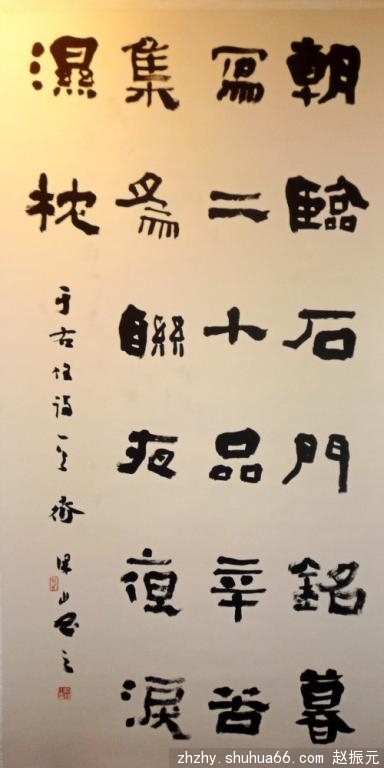 朝臨石門銘暮
寫二十品辛苦
集為聯夜夜淚
濕枕
于右任詩一
zhzhy.shuhua66.com 赵振元